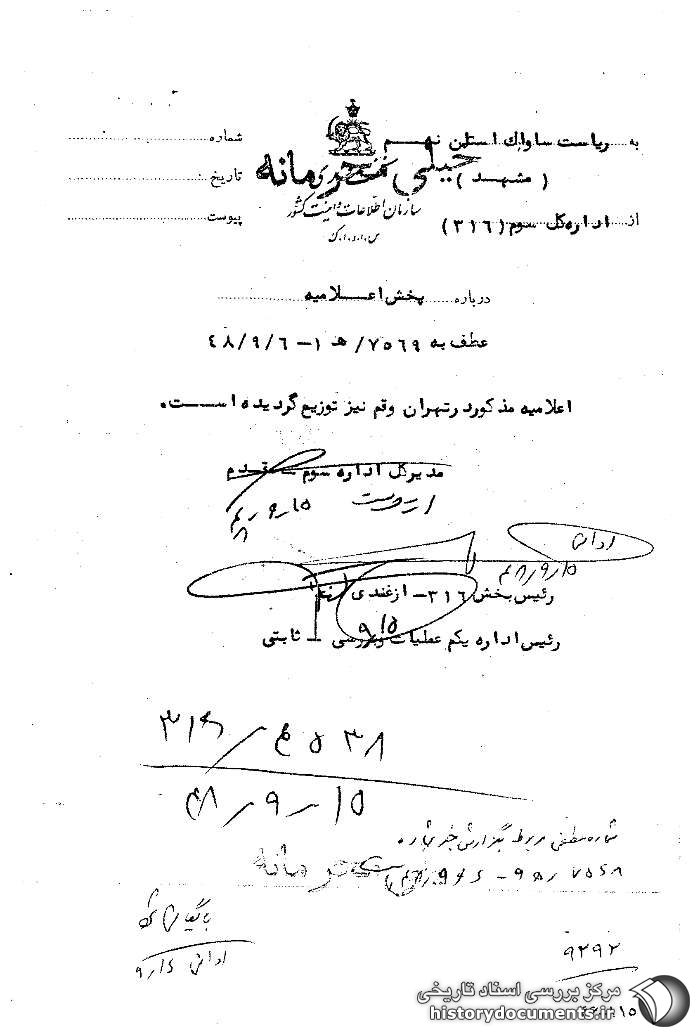 به ریاست ساواک استان نهم شماره
(مشهد) خیلی محرمانه تاریخ
سازمان اطلاعات و امنیت کشور
از اداره کل سوم (۳۱۶) پیوست
س.ا.و.ا.ک
درباره پخش اعلامیه
عطف به ۷۵۶۹/هـ ۱-۴۸/۹/۶
اعلامیه مذکور در تهران و قم نیز توزیع گردیده است.
مدیرکل اداره سوم - مقدم
از طرف ۴۸/۹/۱۵
۴۸/۹/۱۵
رئیس بخش ۳۱۶- ازغندی
۹/۱۵
رئیس اداره یکم عملیات و بررسی - ثابتی
۳۱۶/۴۵۳۸
۴۸/۹/۱۵
شماره عطفی مربوط بگزارش خبر شماره
محرمانه
بایگانی شود
۹۲۹۲
مرکز بررسی اسناد تاریخی
historydocuments.ir